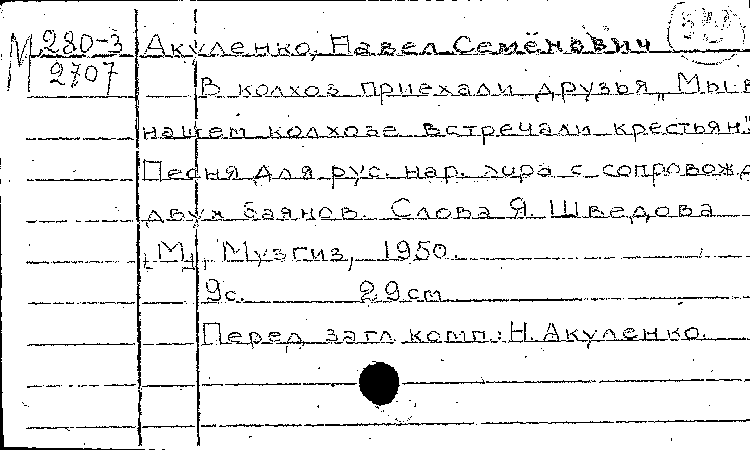 М 280-3 Акуленко, Павел Семёнович
2707 В колхоз приехали друзья „Мы в
нашем колхозе встречали крестьян."
Песня для рус. нар. хора с сопровожд
двух баянов. Слова Я. Шведова
[М], Музгиз, 1950.
9с. 29cm
Перед загл. комп.: Н. Акуленко.